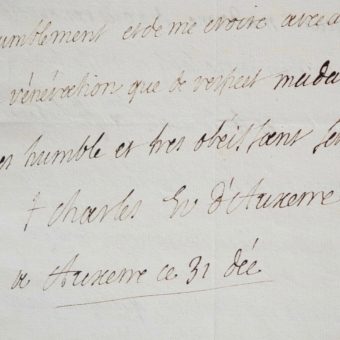 umblement et de me croire avec a
vénération que de respect mada
es humble et tres obéissant ser
† Charles Ev d'Auxerre
a Auxerre ce 31 déc